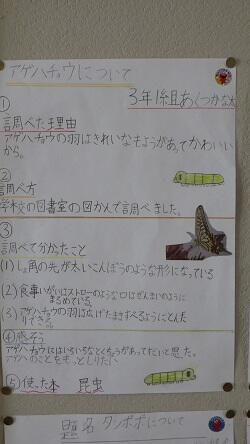 アゲハチョウについて
3年1組あくつかな大
①
調べた理由
アゲハチョウの羽はきれいなもようがあってかわいい
から。
②
調べ方
学校の図書室の図かんで調べました。
③
調べて分かったこと
(1)しょっ角の先が太いこんぼうのような形になっている
(2)食事いがいはストローのような口はぜんまいのように
まるめている
(3)アゲハチョウの羽は広げたまますべるようにとんだ
りできる。
④感そう
アゲハチョウにはいろいろなとくちょうがあってすごいと思った。
アゲハのことをもっとしりたい
⑤使った本 昆虫
題名 タンポポについて